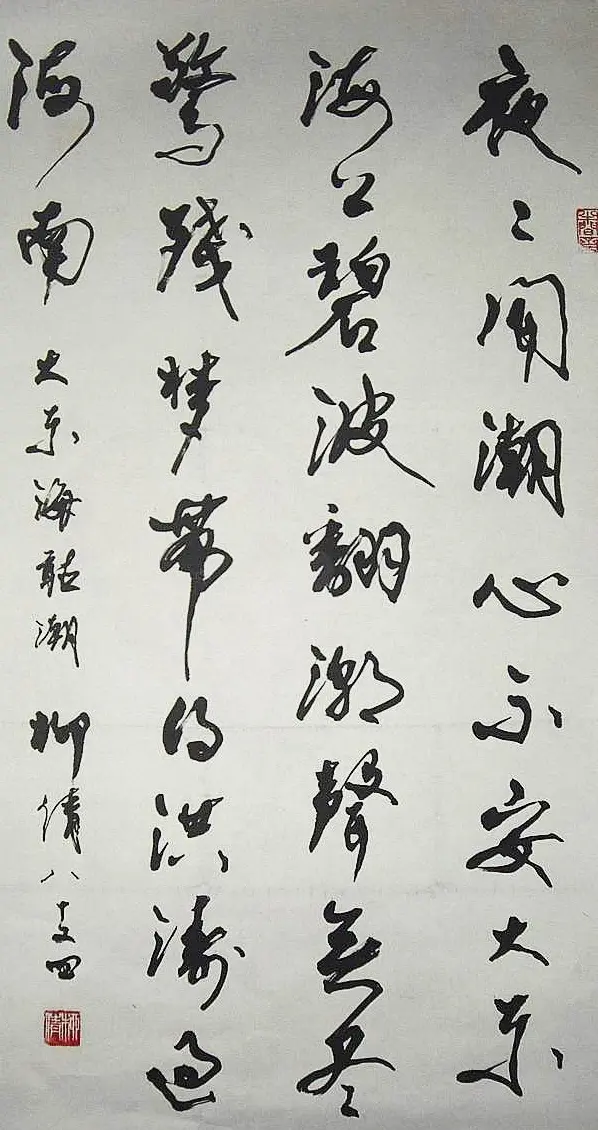 夜〻聞潮心不安大東
海上碧波翻潮聲無尽
驚殘梦帶得洪濤過
海南 大東海聽潮 柳倩八十又四
柳倩